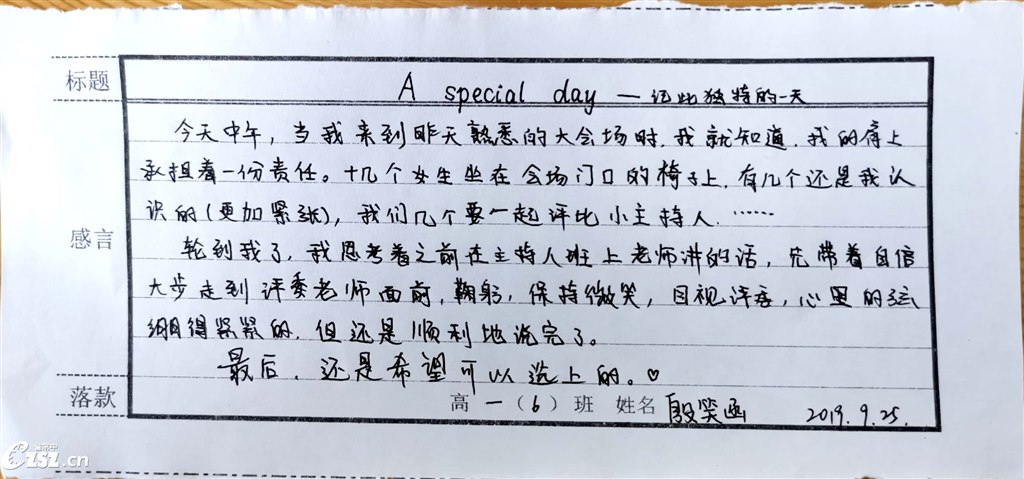 标题
A special day —记此独特的一天
今天中午，当我来到昨天熟悉的大会场时，我就知道，我的肩上
承担着一份责任。十几个女生坐在会场门口的椅子上，有几个还是我认
识的(更加紧张)，我们几个要一起评比小主持人……
感言
轮到我了，我思考着之前在主持人班上老师讲的话，先带着自信
大步走到评委老师面前，鞠躬，保持微笑，目视评委，心里的弦
绷得紧紧的，但还是顺利地说完了。
最后，还是希望可以选上的。♡
落款
高一(6)班 姓名 殷笑函 2019.9.25.
省常中
CZSZ.cn